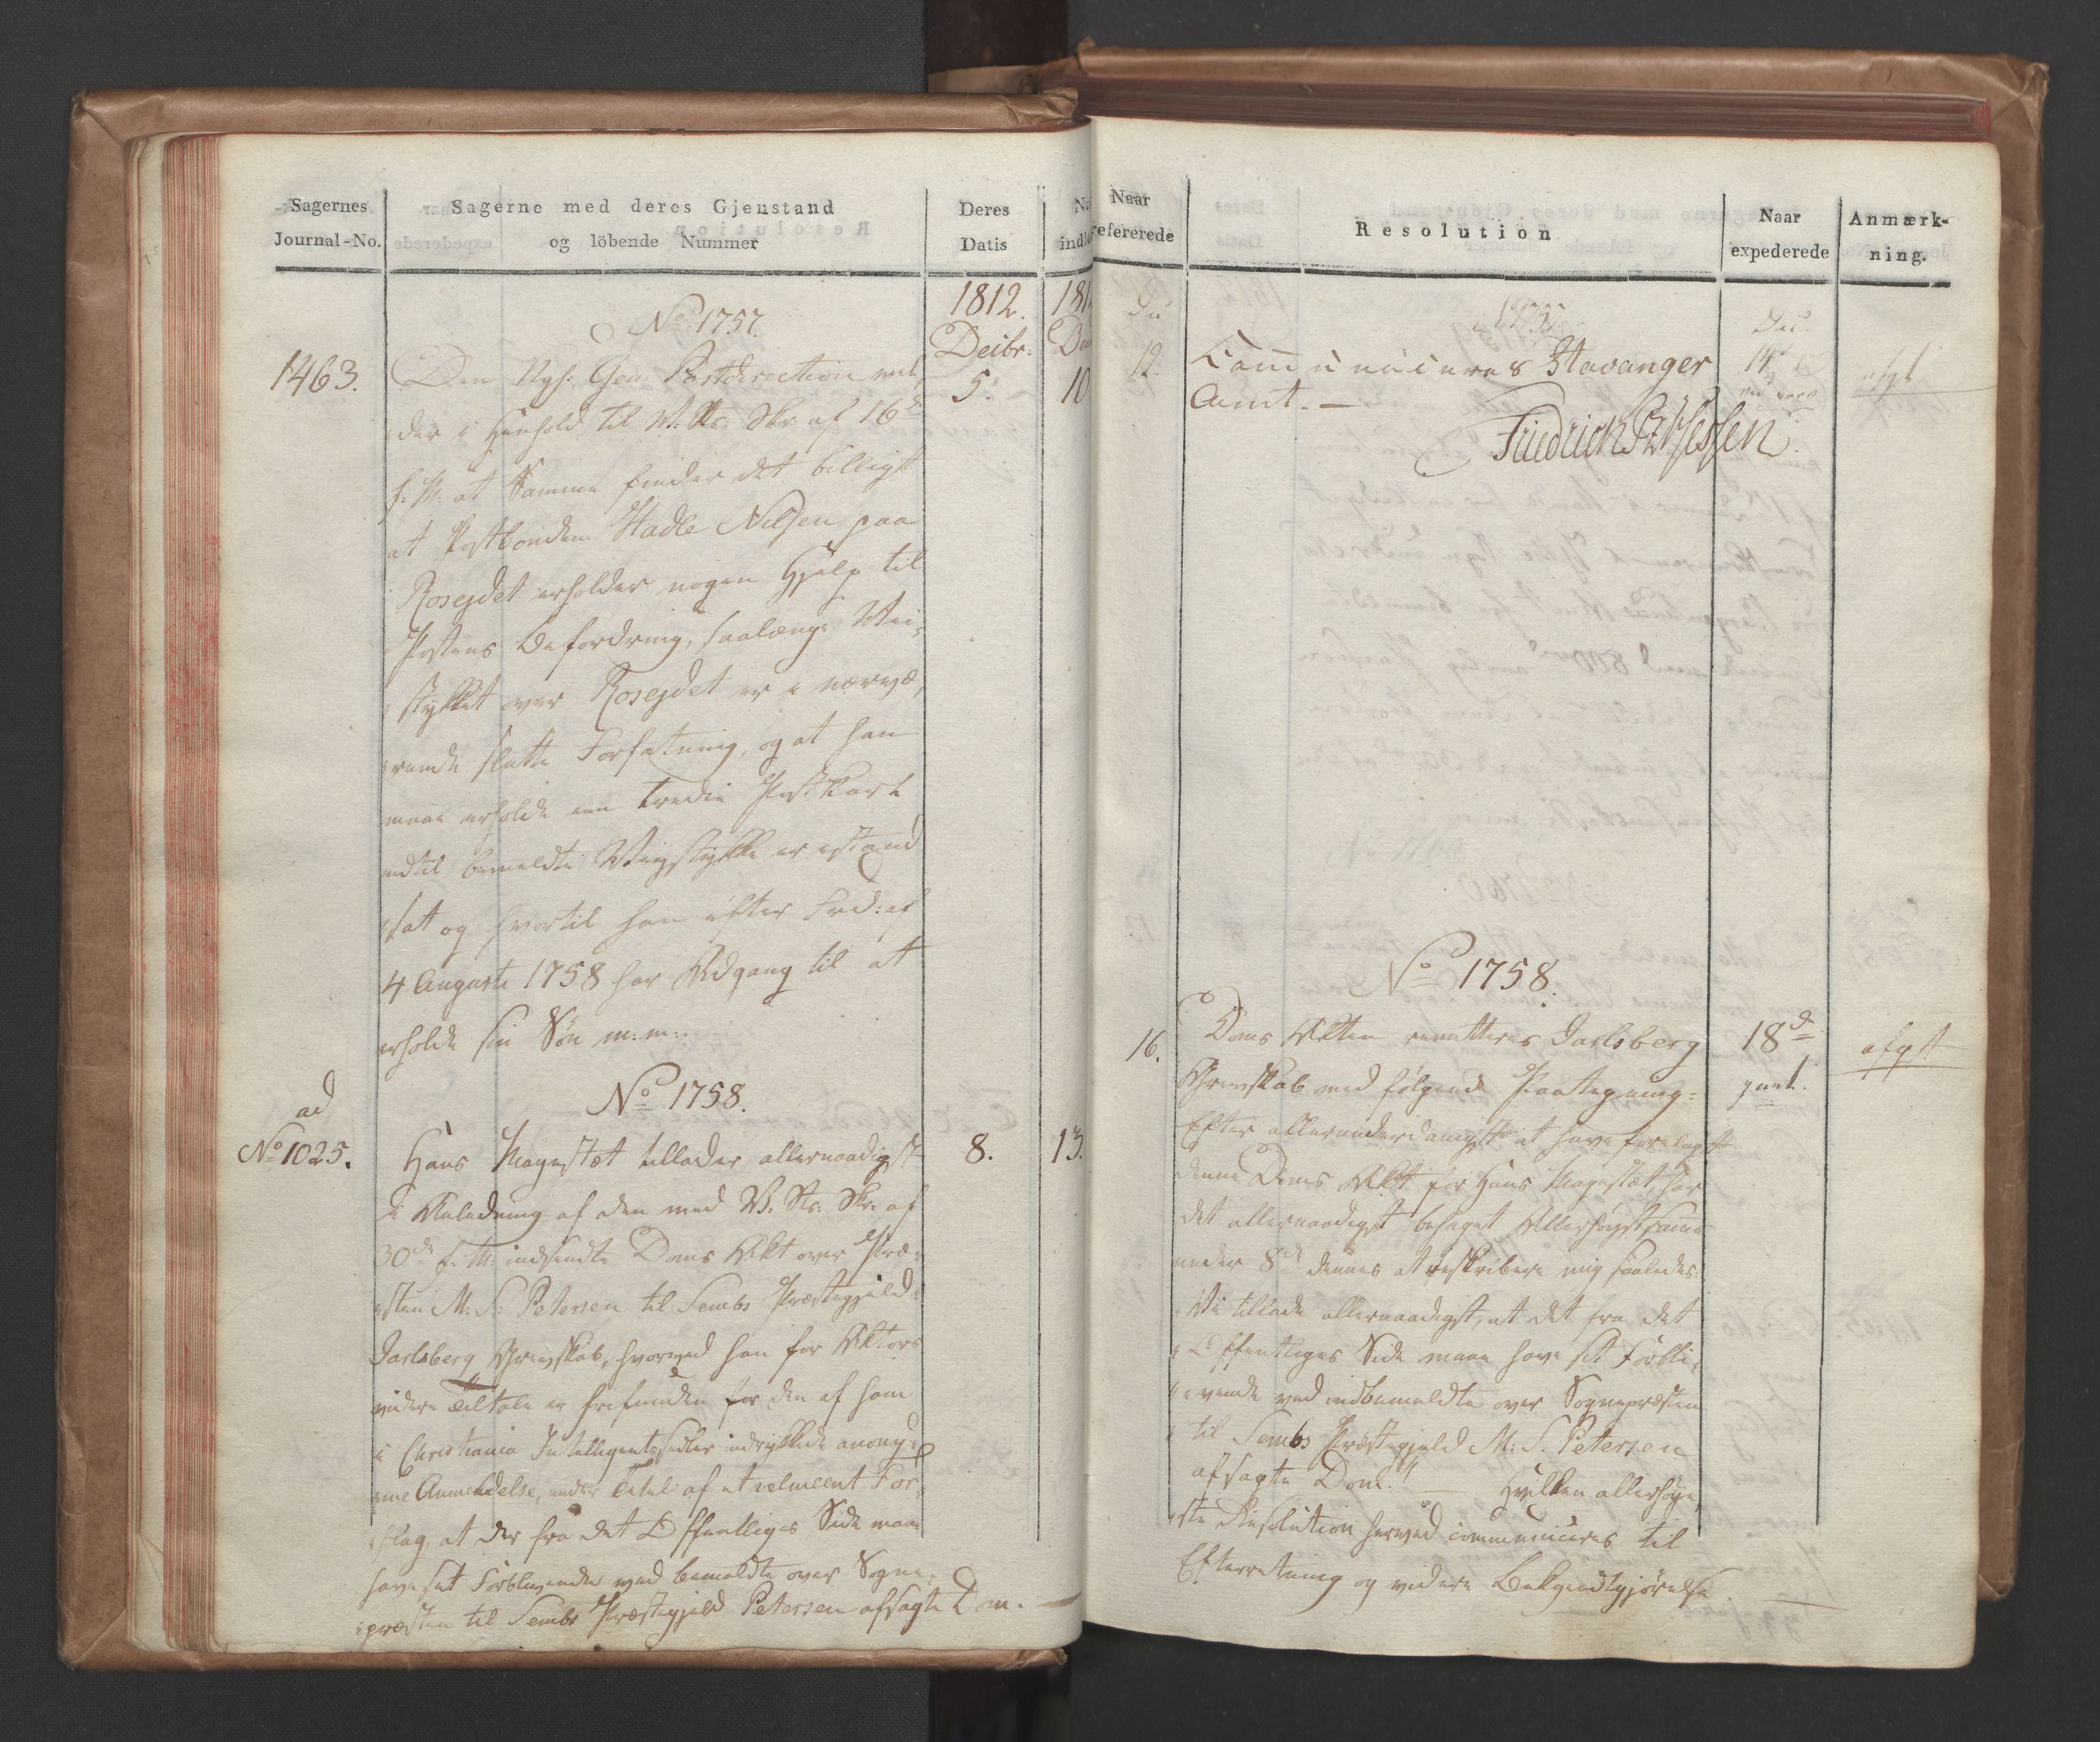 Sagernes
Journal-No.
Sagerne med deres Gjenstand
og löbende Nummer
Deres
Datis
1812.
Decbr:
No 1757.
1463.
5.
10
Den Kgl. Gen: Postdirection mel,
der i Henhold til V. Kr. Skr. af 16de
f. M. at Samme finder det billigt
at Postbonden Hadle Nilsen paa
Rosejdet erholder nogen Hjelp til
Postens Befordring, saalænge Vei,
stykket over Rosejdet er i nærvæ,
rende slette Forfatning, og at han
maae erholde en tredie Postkarl
indtil bemeldte Veiystykke er istand
sat og hvortil han efter Frd: af
4 Augusti 1758 har Adgang til at
erholde sin Søn m:m:
No 1758.
ad
No 1025.
8.
13.
Hans Magestæt tillader allernaadigst
i Anledning af den med V: Kr: Skr: af
30de f. M: indsendte Doms Akt over Præ,
sten M: S: Petersen til Sembs Præstegjeld
Jarlsberg Grevskab, hvorved han for Aktors
videre Tiltale er frifunden for den af ham
i Christiania Intelligentssedler indrykkede anony,
me Anmeldelse, under Titel af et velmeent For,
slag, at der fra det Offentliges Side maae
have sit Forblivende ved bemeldte over Sogne,
præsten til Sembs Præstegjeld Petersen afsagte Dom.
Naar
refererede
Resolution
Naar
expederede
Anmærk-
ning.
12.
Communiceres Stavanger
Amt. —
14
Friedrich Pz Hessen
No 1758.
16.
18de
afgt
Doms Akten remitteres Jarlsberg
Grevskab med følgende Paategning:
Efter allerunderdanigst at have forelagt
denne Doms Akt for Hans Magestæt, har
det allernaadigst behaget Allerhøistsamme
under 8de dennes at reskribere mig saaledes:
"Vi tillade allernaadigst, at det fra det
"Offentliges Side maae have sit Forbli,
"vende ved indbemeldte over Sognepræsten
"til Sembs Præstegjeld M: S. Petersen
afsagte Dom." — Hvilken allerhøie,
ste Resolution herved communiceres til
Efterretning og videre Bekjendtgjørelse